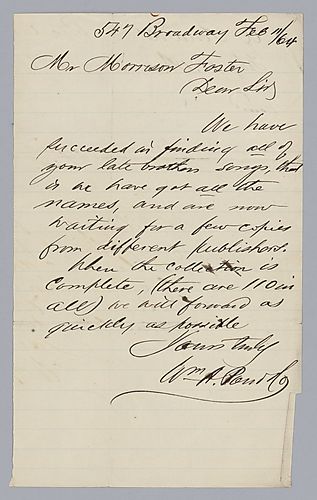 547 Broadway Feb 11/64
Mr Morrison Foster
Dear Sir
We have
succeeded in finding all of
your late brothers songs, that
is we have got all the
names, and are now
waiting for a few copies
from different publishers.
When the collection is
complete, (there are 110 in
all) we will forward as
quickly as possible
Yours truly
Wm A. Pond & Co